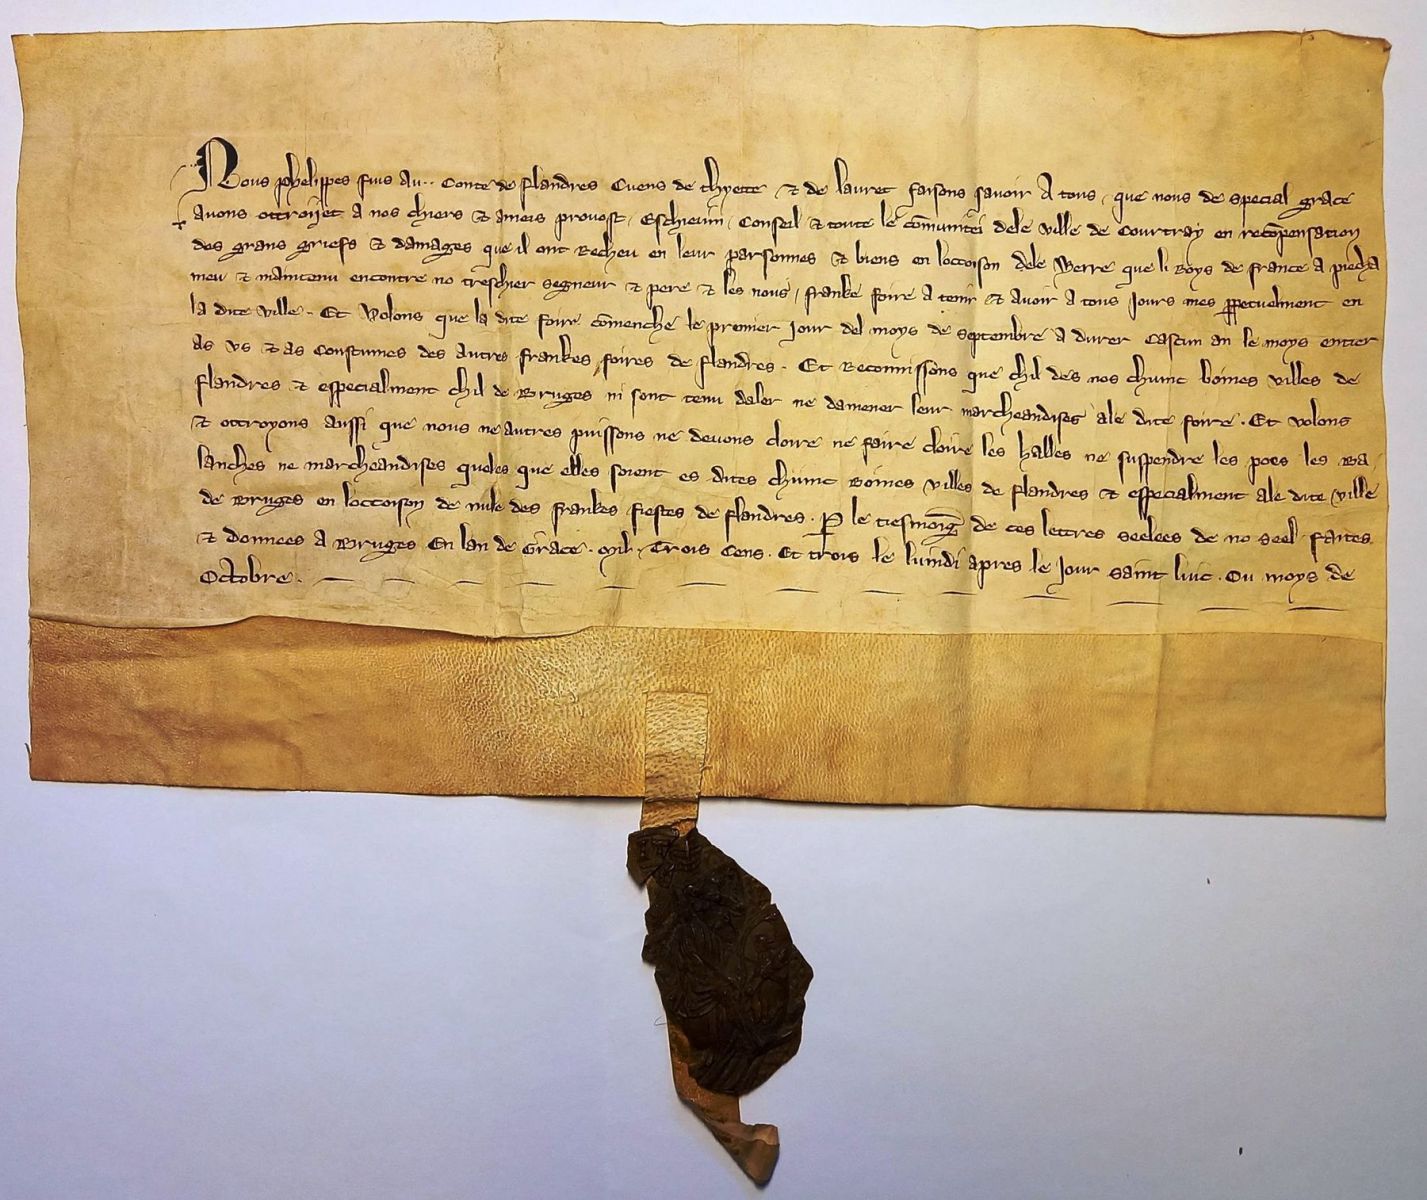 Nous phelippes fius au·· Conte de flandres Cuens de thyette ⁊ de lauret faisons savoir A tous · que nous de special grace
avons ottroijet a nos chiers ⁊ ameis provost · Eschievin · Conseil ⁊ toute le cōmunitei dele ville de Courtray en recōpensation
des grans griefs ⁊ damages que il ont Recheu en leur parsonnes ⁊ biens en loccoison dele Werre que li Roys de france a piecha
meu ⁊ maintenu encontre no treschier segneur ⁊ pere ⁊ les nous / franke foire A tenir ⁊ avoir A tous Jours mes ꝑpetuelment en
la dite ville · Et Volons que la dite foire cōmenche le premier Jour del moys de septembre A durer Cascun an le moys entier
as us ⁊ as Coustumes des Autres frankes foires de flandres · Et Reconnissons que chil des nos chuinc boines villes de
flandres ⁊ especialment chil de Bruges ni sont tenu daler ne damener leur marcheandises ale dite foire · Et volons
⁊ ottroyons aussi que nous ne autres puissons ne devons cloire ne faire cloire les halles ne suspendre les poes les Ba/
lanches ne marcheandises queles que elles soient es dites chuinc Boines villes de flandres ⁊ especialment ale dite ville
de Bruges en loccoison de nule des frankes fiestes de flandres · Par le tiesmoīg de ces lettres seelees de no seel faites
⁊ donnees A Bruges En lan de Grace · Mil · Trois Cens · Et trois le lundi apres le Jour saint luc · Ou moys de
Octobre ·